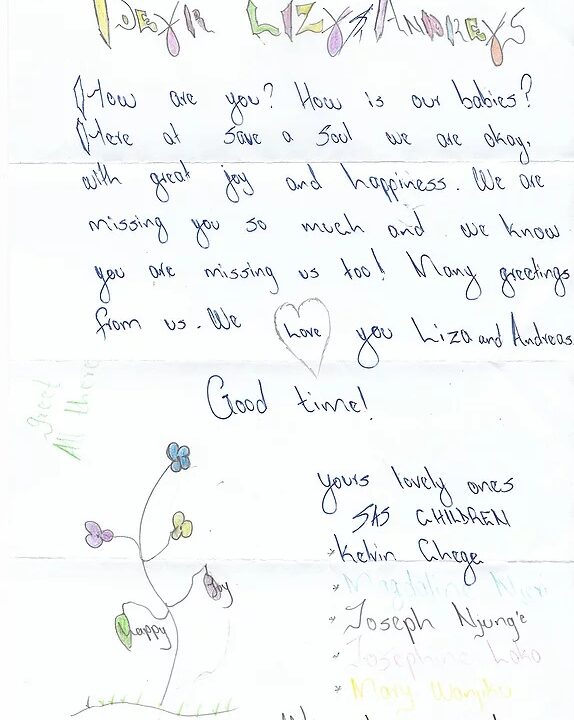 DEAR LIZY & ANDREYS
How are you? How is our babies?
Here at Save a Soul we are okay,
with great joy and happiness. We are
missing you so much and we know
you are missing us too! Many greetings
from us. We Love you Liza and Andreas
Good time!
Greet
All there
yours lovely ones
SAS CHILDREN
* Kelvin Chege
* Magdaline Njeri
* Joseph Njung'e
* Josephine Loko
* Mary Wanjiku
Joy
Happy